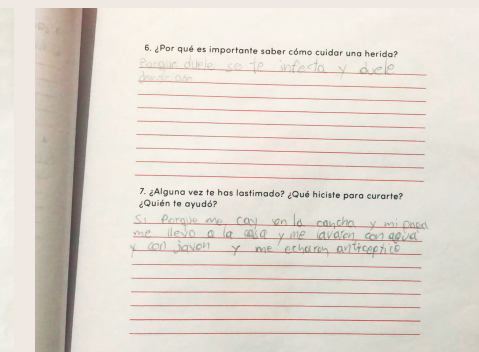 6. ¿Por qué es importante saber cómo cuidar una herida?
Porque duele se te infecta y duele
7. ¿Alguna vez te has lastimado? ¿Qué hiciste para curarte?
¿Quién te ayudó?
Si Porque me cay en la cancha y mi papa
me llevo a la casa y me lavaron con agua
y con javon y me echaron anticeptico